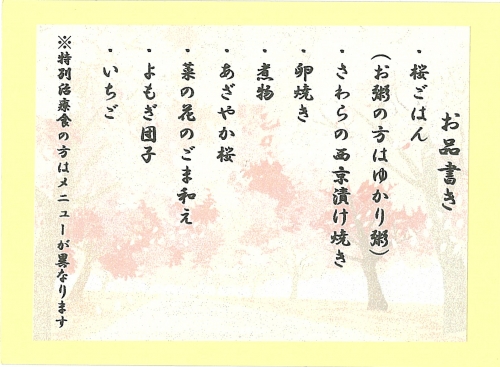 お品書き
・桜ごはん
(お粥の方はゆかり粥)
・さわらの西京漬け焼き
・卵焼き
・煮物
・あざやか桜
・菜の花のごま和え
・よもぎ団子
・いちご
※特別治療食の方はメニューが異なります